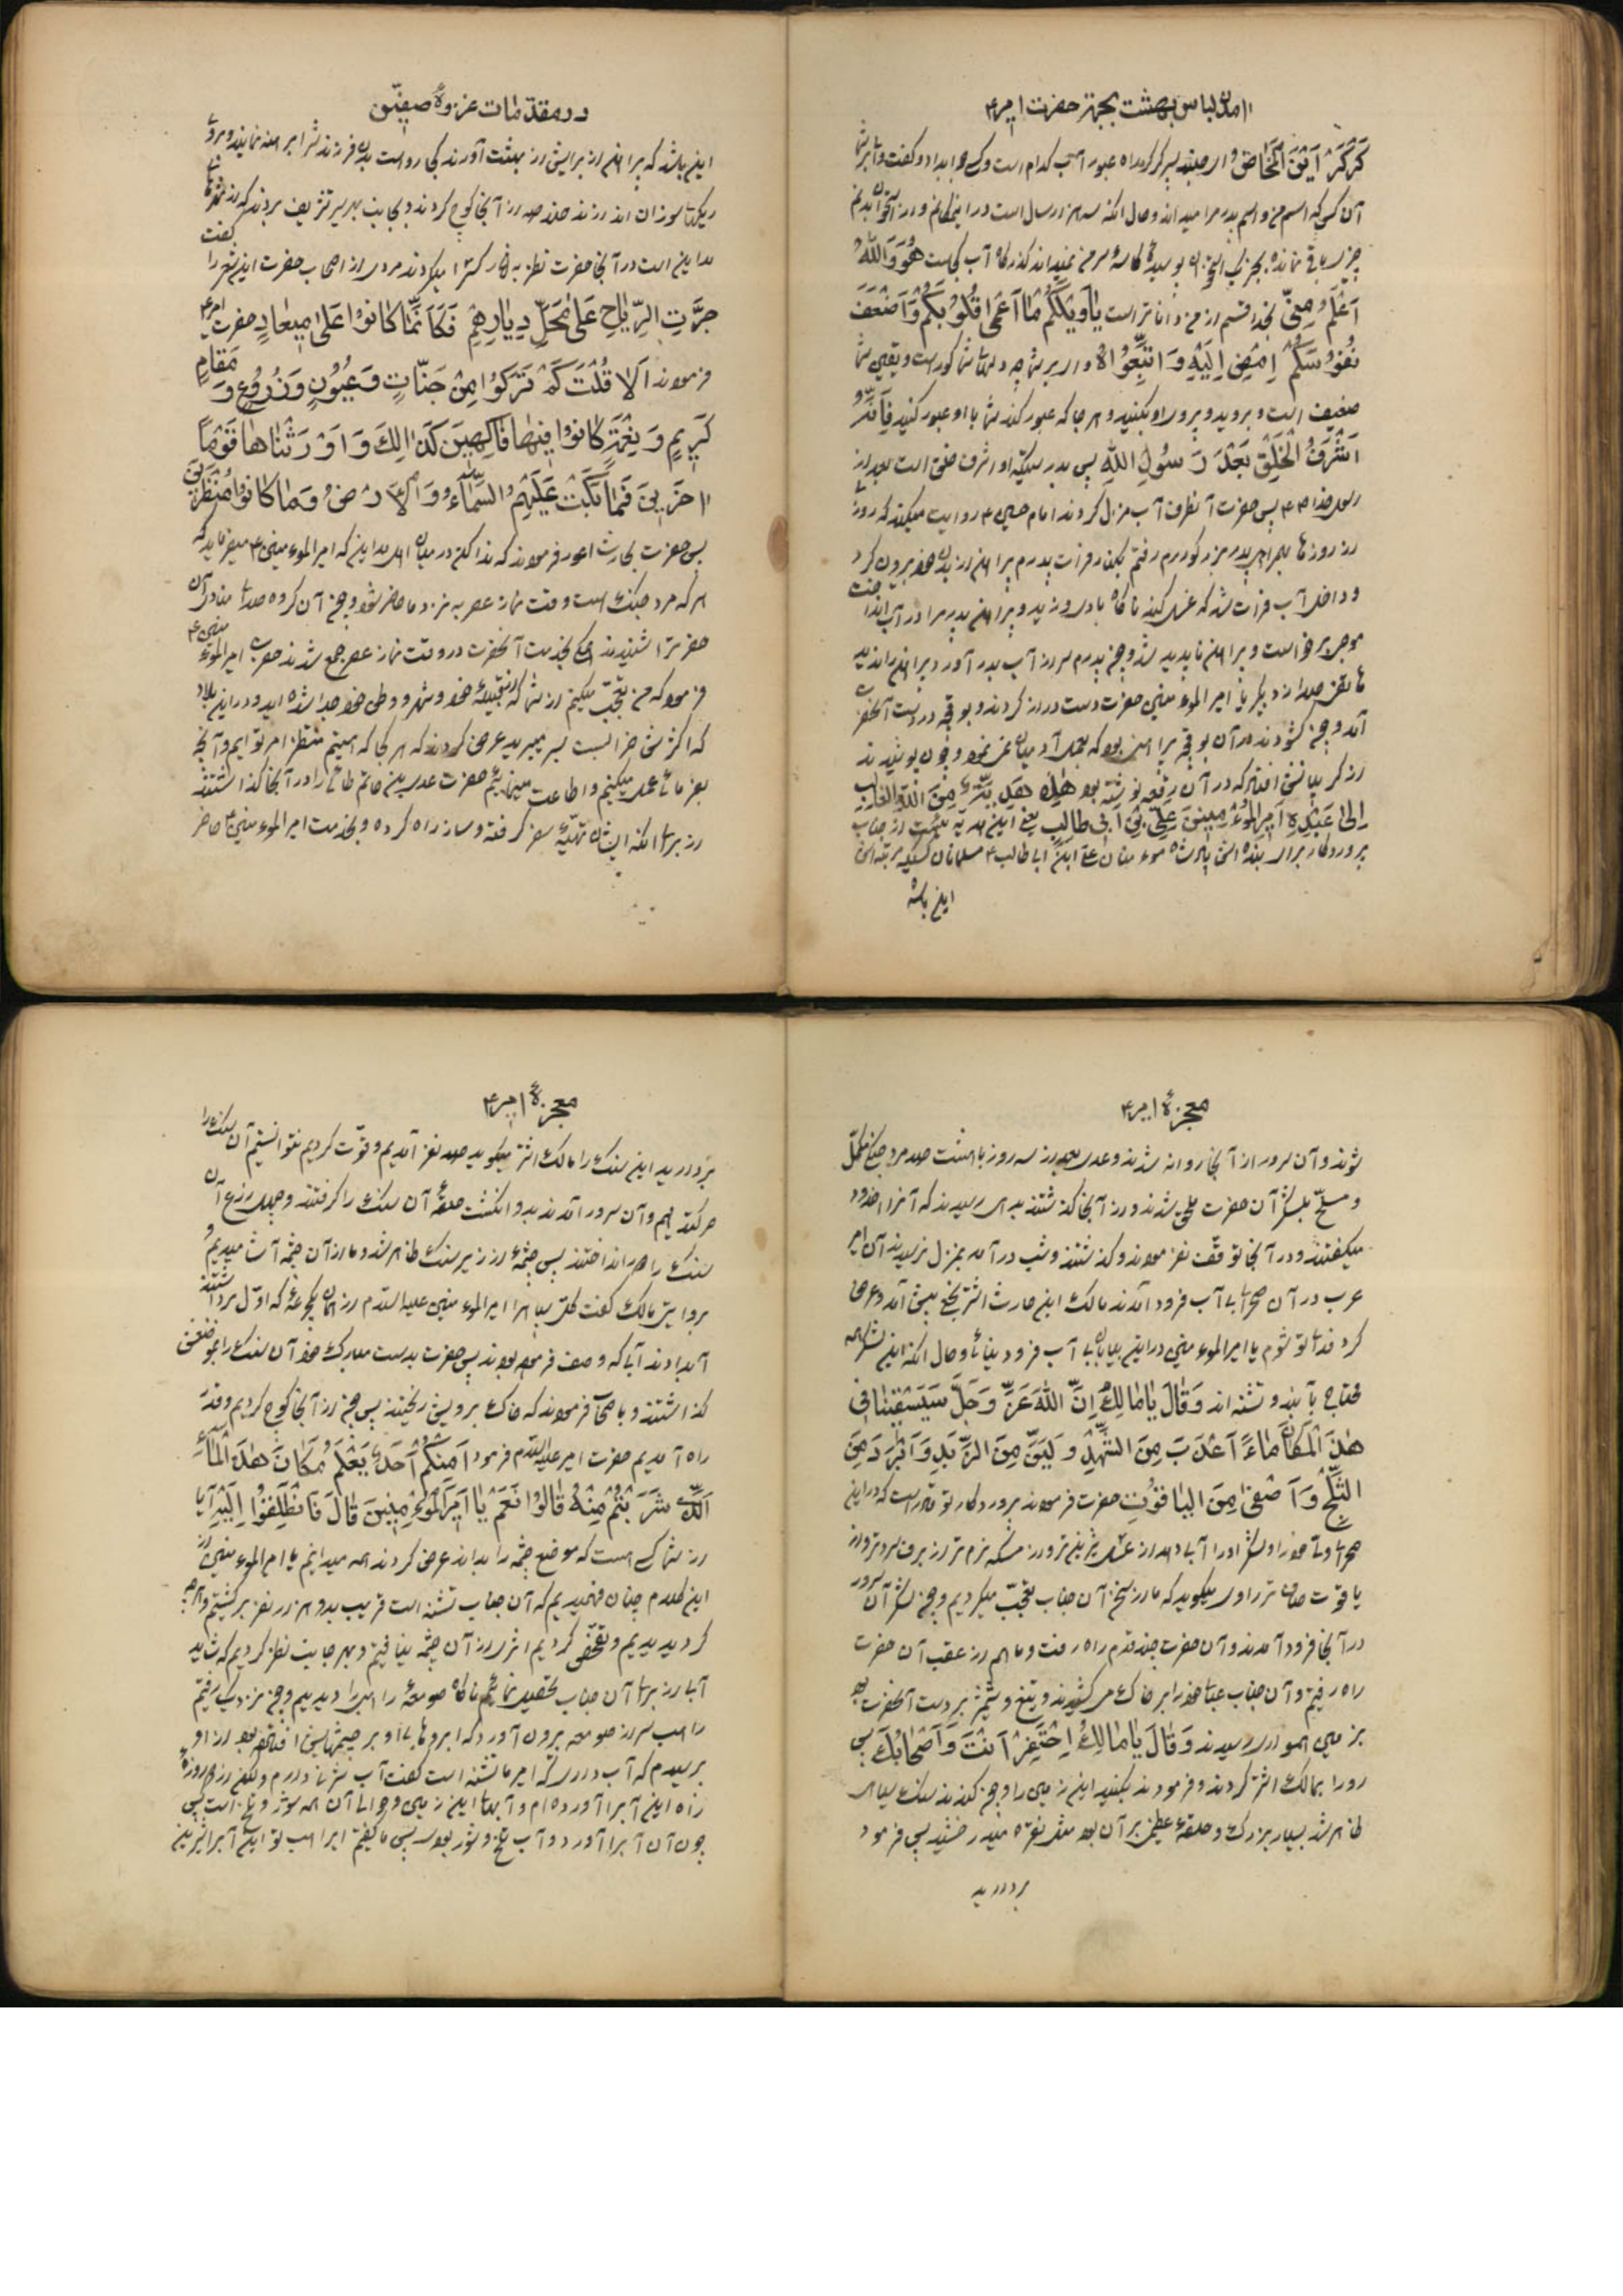 آمدن لباس بهشت بجهة حضرت امیر ع
کَرْکَرْ اَیْنَ الْمَخَاضُ ای صبتد پسر کرکره راه عبور آب کدام است و کسی جوابداد و کفت وای بر شما
آن کسی که اسم من و اسم پدر مرا میداند و حال انکه سه هزار سال است در اینمکانم و از استخوان بدنم
چیزی باقی نمانده بجز یک استخوان پوسیده کاسه سر من نمیداند کذرکاه آب کجاست هُوَ وَاللهِ
اَعْلَمُ مِنّی بخدا قسم از من داناتر است یاوَیْلَکُمْ مٰا اَعْمیٰ قُلُوبَکُمْ وَ اَضْعَفَ
نُفُوسَکُمْ اِمْضُوا اِلَیْهِ وَ اتَّبِعُوهُ وای بر شما چه دلهای شما کور است و یقین شما
ضعیف است و بروید و پیروی او بکنید و هر جا که عبور کند شما با او عبور کنید فَاِنَّهُ
اَشْرَفُ الْخَلْقِ بَعْدَ رَسُولِ اللهِ پس بدرستیکه او اشرف خلق است بعد از
رسول خدا ص پس حضرت آنطرف آب منزل کردند امام حسین ع روایت میکند که روزی
از روزها بهمراه پدر بزرکوارم رفتم بکنار فرات پدرم پیراهن از بدن خود بیرون کرد
و داخل آب فرات شد که غسل کند ناکاه بادی وزید و پیراهن پدر مرا در آب انداخت
موجی برخواست و پیراهن ناپدید شد و چون پدرم سر از آب بدر آورد پیراهن را ندید
هاتفی صدا زد یا امیر المؤمنین حضرت دست دراز کردند و بوقچه در دست آنحضرت
آمد و چون کشودند در آن بوقچه پیراهن بود
از کریبانش افتاد که در آن رقعه نوشته بود هٰذِهِ هَدِیَّةٌ مِنَ اللهِ الغالب
اِلیٰ عَبْدِهِ اَمِیرِ الْمُؤْمِنِینَ عَلِیِّ بْنِ اَبی طالِبٍ یعنی این هدیه ایست از جانب
پروردکار برای بنده اش پادشاه مؤمنان علی ابن ابی طالب ع مسلمانان کسیکه مرتبه اش
این باشد
در مقدّمات غزوهٔ صفّین
این باشد که پیراهن از برایش از بهشت آورند کی رواست بدن فرزندش را برهنه نمایند و بروی
ریکهای سوزان اندازند خلاصه از آنجا کوچ کردند و بجانب بهرسیر تشریف بردند که از شهرهای
مداین است در آنجا حضرت نظر به آثار کسرا میکردند مردی از اصحاب حضرت این شعر را کفت
جَرَّتِ الرِّیاحُ عَلیٰ مَحَلِّ دِیارِهِمْ فَکَاَنَّمٰا کانُوا عَلیٰ مِیعٰادٍ حضرت امیر ع
فرمودند اَلا قُلْتَ کَمْ تَرَکُوا مِنْ جَنّٰاتٍ وَعُیُونٍ وَزُرُوعٍ وَ مَقامٍ
کَرِیمٍ وَنِعْمَةٍ کانُوا فِیهٰا فٰاکِهِینَ کَذٰالِکَ وَاَوْرَثْنٰاهٰا قَوْماً
اٰخَرِینَ فَمٰا بَکَتْ عَلَیْهِمُ السَّمٰاءُ وَالْاَرْضُ وَمٰا کانُوا مُنْظَرِینَ
پس حضرت بحارث اعور فرمودند که ندا کن در میان اهل مداین که امیر المؤمنین ع میفرماید که
هر که مرد جنک است وقت نماز عصر به نزد ما حاضر شود و چون آن کروه صدای منادی آن
حضرترا شنیدند همکی بخدمت آنحضرت در وقت نماز عصر جمع شدند حضرت امیر المؤمنین ع
فرمود که من تعجّب میکنم از شما که از قبیلهٔ خود و شهر و وطن خود جدا شده اید و در این بلاد
که اکثرش خرابست بسر میبرید عرض کردند که هر کجا که هستیم منتظر امر توایم و آنچه
بفرمائی عمل میکنیم و اطاعت مینمائیم حضرت عدی بن حاتم طائی را در آنجا کذاشتند
از برای انکه ایشان تهیّهٔ سفر کرفته و ساز راه کرده و بخدمت امیر المؤمنین ع حاضر
معجزهٔ امیر ع
شوند و آن سرور از آنجا روانه شدند و عدی بعد از سه روز با هشتصد مرد جنکی مکمّل
و مسلّح بلشکر آن حضرت ملحق شدند و از آنجا کذشتند بدهی رسیدند که آنرا
میکفتند و در آنجا توقّف نفرمودند و کذشتند و شب در آمد بمنزل نرسیدند آن امیر
عرب در آن صحرای بی آب فرود آمدند مالک ابن حارث اشتر نخعی پیش آمد و عرض
کرد فدای تو شوم یا امیر المؤمنین در این بیابان بی آب فرود میآئی و حال انکه این لشکر همه
محتاج بآبند و تشنه اند وَقٰالَ یٰا مٰالِکُ اِنَّ اللهَ عَزَّ وَجَلَّ سَیَسْقِینٰا فی
هٰذَا الْمَکٰانِ مٰاءً اَعْذَبَ مِنَ الشَّهْدِ وَ اَلْیَنَ مِنَ الزُّبْدِ وَاَبْرَدَ مِنَ
الثَّلْجِ وَاَصْفیٰ مِنَ الْیٰاقُوتِ حضرت فرمودند پروردکار تو قادر است که در این
صحرا ولیّ خود را و لشکر او را آب دهد از عسل شیرین تر و از مسکه نرم تر از برف سردتر و از
یاقوت صاف تر راوی میکوید که ما از سخن آن جناب تعجّب میکردیم و چون لشکر آن سرور
در آنجا فرود آمدند و آن حضرت چند قدم راه رفت و ما هم از عقب آن حضرت
راه رفتیم و آن جناب عبای خود را بر خاک میکشیدند و تیغ و شمشیر بر دست آنحضرت بود
بزمین همواری رسیدند وَقٰالَ یٰا مٰالِکُ اِحْتَفِرْ اَنْتَ وَاَصْحٰابُکَ پس
رو را بمالک اشتر کردند و فرمودند بکنید این زمین را و چون کندند سنک سیاهی
ظاهر شد بسیار بزرک و حلقهٔ عظیمی بر آن بود مثل نقره میدرخشید پس فرمود
بردارید
معجزهٔ امیر ع
بردارید این سنک را مالک اشتر میکوید صد نفر آمدیم و قوّت کردیم نتوانستیم آن سنک را
حرکت دهیم و آن سرور آمدند بدو انکشت حلقهٔ آن سنک را کرفتند و چهل ذرع آن
سنک را دور انداختند پس چشمهٔ از زیر سنک ظاهر شد و ما از آن چشمه آب آشامیدیم و
بروایتی مالک کفت مرا امیر المؤمنین علیه السلام از همان یکجرعهٔ که اوّل برداشتند
آبدادند آبی که وصف فرموده بودند پس حضرت بدست مبارک خود آن سنک را بموضعش
کذاشتند و باصحاب فرمودند که خاک برویش ریختند پس چون از آنجا کوچ کردیم و قدری
راه آمدیم حضرت امیر علیه السلام فرمود اَمِنْکُمْ اَحَدٌ یَعْلَمُ مَکٰانَ هٰذَا الْمٰاءِ
الَّذی شَرِبْتُمْ مِنْهُ قٰالُوا نَعَمْ یٰا اَمِیرَ الْمُؤْمِنِینَ قٰالَ فَانْطَلِقُوا اِلَیْهِ آیا
از شما کسی هست که موضع چشمه را بداند عرض کردند همه میدانیم یا امیر المؤمنین از
این کلام چنان فهمیدیم که آن جناب تشنه است قریب بدو هزار نفر برکشتیم و هر چه
کردیدیم و تفحّص کردیم اثری از آن چشمه نیافتیم و بهر جانب نظر کردیم که شاید
آبی از برای آن جناب تحصیل نمائیم ناکاه صومعهٔ راهبی را دیدیم و چون نزدیک رفتیم
راهب سر از صومعه بیرون آورد که ابروهای او بر چشمهایش افتاده بود از او
پرسیدم که آب داری که امیر ما تشنه است کفت آب شیرین دارم ولیکن از دو روزه
راه این آبرا آورده ام و آبهای این زمین و حوالی آن همه شور و تلخ است پس
چون آن آبرا آورد دو آب تلخ و شور بود پس ما کفتیم ای راهب تو این آبرا شیرین